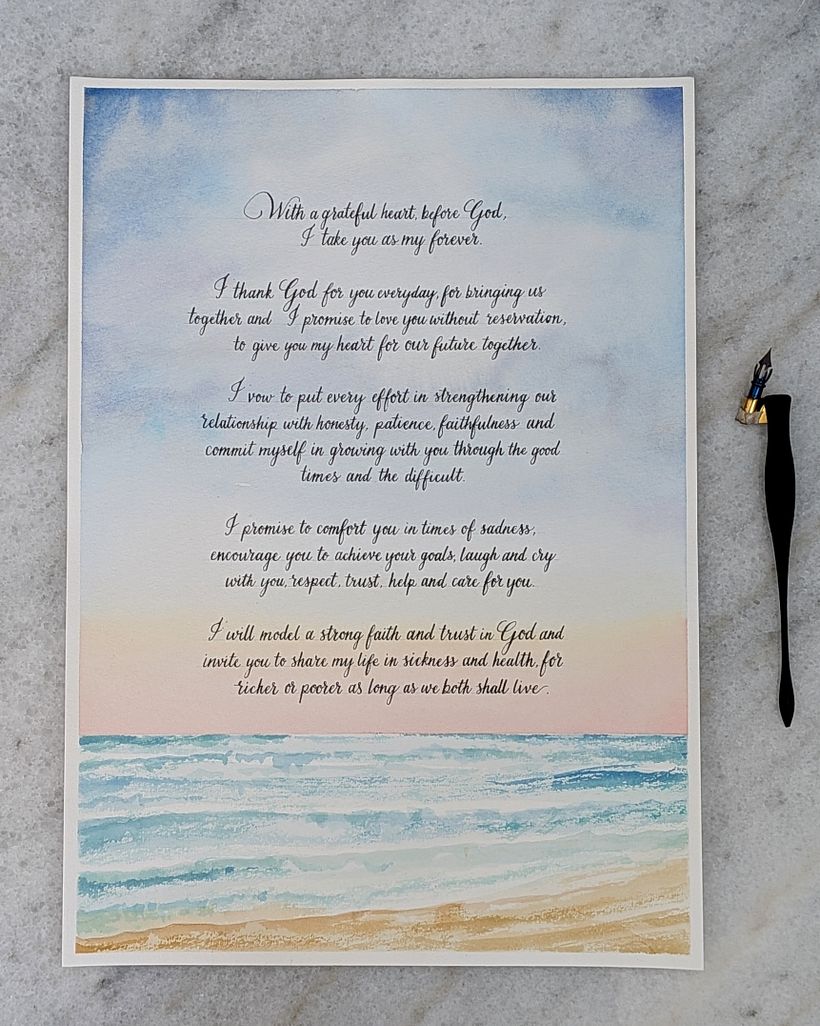 With a grateful heart, before God,
I take you as my forever.
I thank God for you everyday, for bringing us
together and I promise to love you without reservation,
to give you my heart for our future together.
I vow to put every effort in strengthening our
relationship with honesty, patience, faithfulness and
commit myself in growing with you through the good
times and the difficult.
I promise to comfort you in times of sadness,
encourage you to achieve your goals, laugh and cry
with you, respect, trust, help and care for you.
I will model a strong faith and trust in God and
invite you to share my life in sickness and health, for
richer or poorer as long as we both shall live.